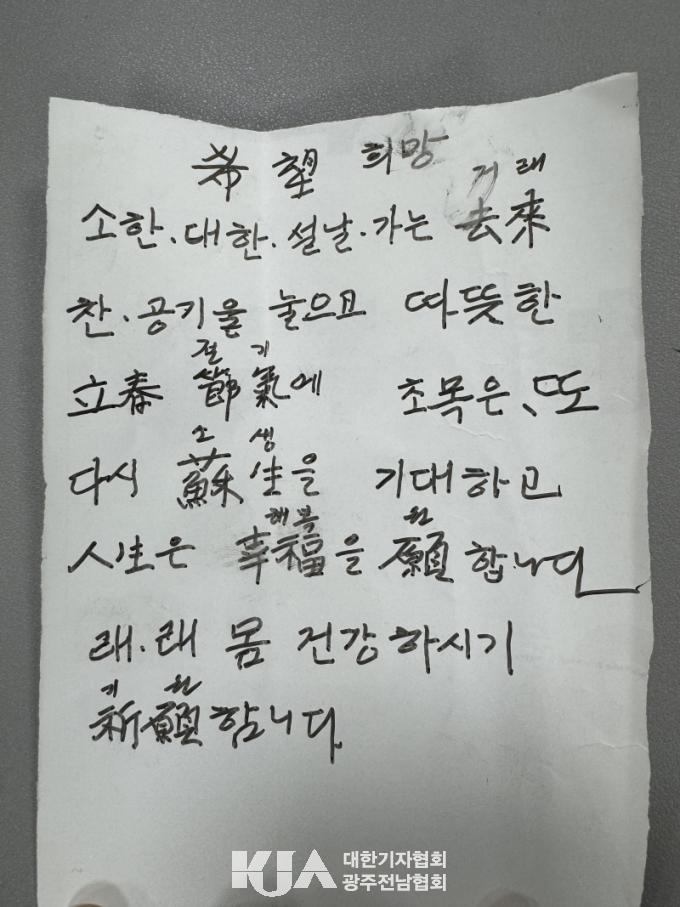 希望 희망
거래
소한.대한.설날.가는 去來
찬.공기울 눌으고 따뜻한
절기
立春 節氣에 초목은、또
소생
다시 蘇生을 기대하고
행복 원
人生은 幸福을 願합니다
래.래 몸 건강하시기
기원
祈願합니다.
KJA 대한기자협회
광주전남협회